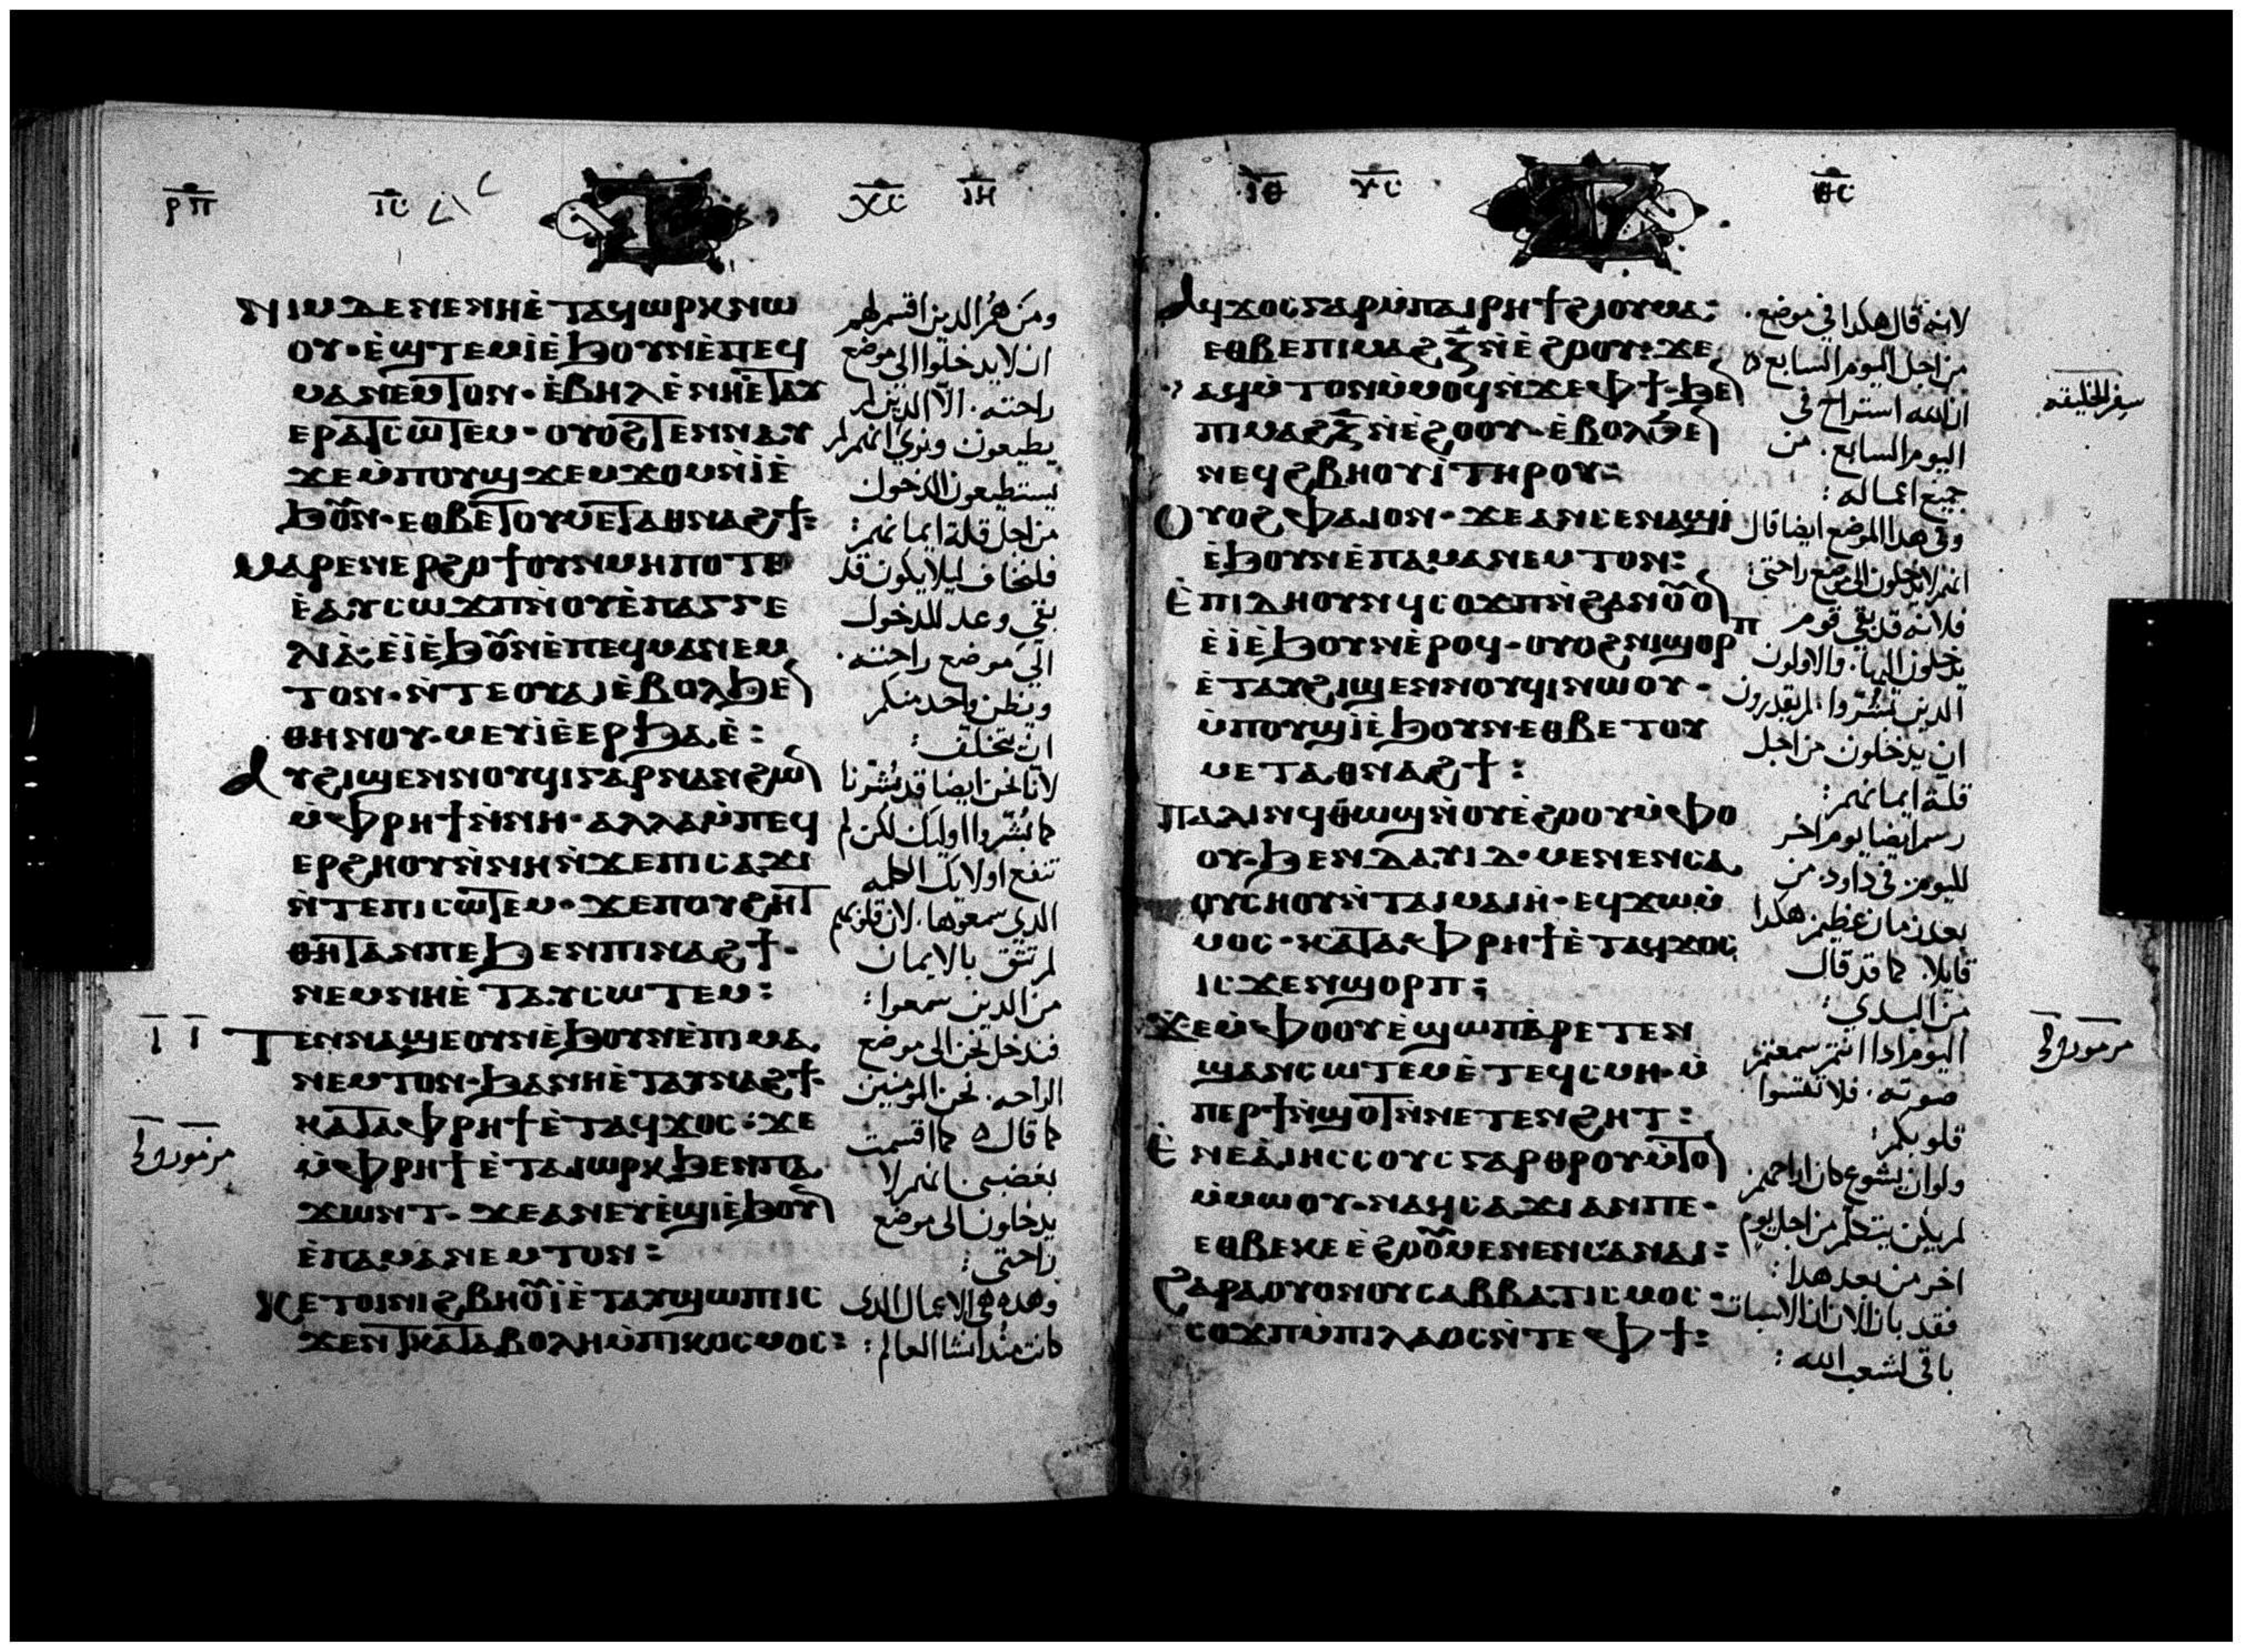 ⲣⲡ ⲓⲥ ⲭⲥ ⲓⲏ
ⲛⲓⲙ ⲇⲉ ⲛⲉ ⲛⲏⲉ̀ⲧⲁϥⲱⲣⲕ ⲛⲱ
ⲟⲩ· ⲉ̀ϣⲧⲉⲙⲓ̀ ⲉ̀ϧⲟⲩⲛ ⲉ̀ⲡⲉϥ
ⲙⲁⲛⲉⲙⲧⲟⲛ· ⲉ̀ⲃⲏⲗ ⲉ̀ⲛⲏⲉ̀ⲧⲁⲩ
ⲉⲣⲁⲧⲥⲱⲧⲉⲙ· ⲟⲩⲟϩ ⲧⲉⲛⲛⲁⲩ
ϫⲉ ⲙ̀ⲡⲟⲩϣϫⲉⲙϫⲟⲙ ⲛ̀ⲓ̀ ⲉ̀
ϧⲟⲩⲛ· ⲉⲑⲃⲉ ⲧⲟⲩⲙⲉⲧⲁⲑⲛⲁϩϯ:
ⲙⲁⲣⲉⲛⲉⲣϩⲟϯ ⲟⲩⲛ ⲙⲏⲡⲟⲧⲉ
ⲉ̀ⲁⲩⲥⲱϫⲡ ⲛ̀ⲟⲩⲉ̀ⲡⲁⲅⲅⲉ
ⲗⲓⲁ̀· ⲉ̀ⲓ̀ ⲉ̀ϧⲟⲩⲛ ⲉ̀ⲡⲉϥⲙⲁⲛⲉⲙ
ⲧⲟⲛ· ⲛ̀ⲧⲉ ⲟⲩⲁⲓ ⲉ̀ⲃⲟⲗ ϧⲉⲛ
ⲑⲏⲛⲟⲩ· ⲙⲉⲩⲓ̀ ⲉ̀ⲉⲣϧⲁⲉ̀:
ⲁⲩϩⲓϣⲉⲛⲛⲟⲩϥⲓ ⲅⲁⲣ ⲛⲁⲛ ϩⲱⲛ
ⲙ̀ⲫⲣⲏϯ ⲛ̀ⲛⲏ· ⲁⲗⲗⲁ ⲙ̀ⲡⲉϥ
ⲉⲣϩⲏⲟⲩ ⲛ̀ⲛⲏ ⲛ̀ϫⲉ ⲡⲓⲥⲁϫⲓ
ⲛ̀ⲧⲉ ⲡⲓⲥⲱⲧⲉⲙ· ϫⲉ ⲡⲟⲩϩⲏⲧ
ⲑⲏⲧ ⲁⲛ ⲡⲉ ϧⲉⲛ ⲡⲓⲛⲁϩϯ·
ⲛⲉⲙ ⲛⲏⲉ̀ⲧⲁⲩⲥⲱⲧⲉⲙ:
ⲧⲉⲛⲛⲁϣⲉ ⲟⲩⲛ ⲉ̀ϧⲟⲩⲛ ⲉ̀ⲡⲓⲙⲁ
ⲛⲉⲙⲧⲟⲛ· ϧⲁ ⲛⲏⲉ̀ⲧⲁⲩⲛⲁϩϯ·
ⲕⲁⲧⲁ ⲫⲣⲏϯ ⲉ̀ⲧⲁϥϫⲟⲥ: ϫⲉ
ⲙ̀ⲫⲣⲏϯ ⲉ̀ⲧⲁⲓⲱⲣⲕ ϧⲉⲛ ⲡⲁ
ϫⲱⲛⲧ· ϫⲉ ⲁⲛ ⲉⲩⲉ̀ϣⲓ̀ ⲉ̀ϧⲟⲩⲛ
ⲉ̀ⲡⲁⲙⲁⲛⲉⲙⲧⲟⲛ:
ⲕⲉⲧⲟⲓ ⲛⲓϩⲃⲏⲟⲩⲓ̀ ⲉ̀ⲧⲁⲩϣⲱⲡⲓ ⲓⲥ
ϫⲉⲛ ⲧⲕⲁⲧⲁⲃⲟⲗⲏ ⲙ̀ⲡⲓⲕⲟⲥⲙⲟⲥ:
ومن هم الذين اقسم لهم
ان لا يدخلوا الى موضع
راحته. الا الذين لم
يطيعون ونرى انهم لم
يستطيعون الدخول
من اجل قلة ايمانهم:
فلنخاف ليلا يكون قد
بقي وعد للدخول
الى موضع راحته.
ويظن واحد منكم
ان يتخلف:
لانا نحن ايضا قد بُشّرنا
كما بُشّروا اوليك لكن لم
تنفع اولايك الكلمه
الذي سمعوها. لان قلوبهم
لم تثق بالايمان
من الذين سمعوا:
فندخل نحن الى موضع
الراحه. نحن المومنين
كما قال ه كما اقسمت
بغضبي انهم لا
يدخلون الى موضع
راحتي:
وهذه هي الاعمال الذى
كانت منذ انشا العالم:
مزمور
ⲓⲑ ⲩⲥ ⲑⲥ
ⲁϥϫⲟⲥ ⲅⲁⲣ ⲙ̀ⲡⲁⲓⲣⲏϯ ϩⲓ ⲟⲩⲙⲁ:
ⲉⲑⲃⲉ ⲡⲓⲙⲁϩⲍ̅ ⲛ̀ⲉ̀ϩⲟⲟⲩ: ϫⲉ
ⲁϥⲙ̀ⲧⲟⲛ ⲙ̀ⲙⲟϥ ⲛ̀ϫⲉ ⲫϯ· ϧⲉⲛ
ⲡⲓⲙⲁϩⲍ̅ ⲛ̀ⲉ̀ϩⲟⲟⲩ· ⲉ̀ⲃⲟⲗ ϧⲉⲛ
ⲛⲉϥϩⲃⲏⲟⲩⲓ̀ ⲧⲏⲣⲟⲩ:
ⲟⲩⲟϩ ⲫⲁⲓ ⲟⲛ· ϫⲉ ⲁⲛ ⲥⲉⲛⲁϣⲓ̀
ⲉ̀ϧⲟⲩⲛ ⲉ̀ⲡⲁⲙⲁⲛⲉⲙⲧⲟⲛ:
ⲉ̀ⲡⲓⲇⲏ ⲟⲩⲛ ϥⲥⲟϫⲡ ⲛ̀ϩⲁⲛⲟⲩⲟⲛ
ⲉ̀ⲓ̀ ⲉ̀ϧⲟⲩⲛ ⲉ̀ⲣⲟϥ· ⲟⲩⲟϩ ⲛⲓϣⲟⲣⲡ
ⲉ̀ⲧⲁⲩϩⲓϣⲉⲛⲛⲟⲩϥⲓ ⲛⲱⲟⲩ·
ⲙ̀ⲡⲟⲩϣⲓ̀ ⲉ̀ϧⲟⲩⲛ ⲉⲑⲃⲉ ⲧⲟⲩ
ⲙⲉⲧⲁⲑⲛⲁϩϯ:
ⲡⲁⲗⲓⲛ ϥⲑⲱϣ ⲛ̀ⲟⲩⲉ̀ϩⲟⲟⲩ ⲙ̀ⲫⲟ
ⲟⲩ· ϧⲉⲛ ⲇⲁⲩⲓⲇ· ⲙⲉⲛⲉⲛⲥⲁ
ⲟⲩⲥⲏⲟⲩ ⲛ̀ⲧⲁⲓⲙⲁⲓⲏ· ⲉϥϫⲱ ⲙ̀
ⲙⲟⲥ· ⲕⲁⲧⲁ ⲫⲣⲏϯ ⲉ̀ⲧⲁϥϫⲟⲥ
ⲓⲥϫⲉⲛ ϣⲟⲣⲡ:
ϫⲉ ⲙ̀ⲫⲟⲟⲩ ⲉ̀ϣⲱⲡ ⲁ̀ⲣⲉⲧⲉⲛ
ϣⲁⲛⲥⲱⲧⲉⲙ ⲉ̀ⲧⲉϥⲥⲙⲏ· ⲙ̀
ⲡⲉⲣϯⲛ̀ϣⲟⲧ ⲛ̀ⲛⲉⲧⲉⲛϩⲏⲧ:
ⲉ̀ⲛⲉ ⲁ̀ ⲓⲏⲥⲟⲩⲥ ⲅⲁⲣ ⲑⲣⲟⲩⲙ̀ⲧⲟⲛ
ⲙ̀ⲙⲱⲟⲩ· ⲛⲁϥⲥⲁϫⲓ ⲁⲛ ⲡⲉ·
ⲉⲑⲃⲉ ⲕⲉⲉ̀ϩⲟⲟⲩ ⲙⲉⲛⲉⲛⲥⲁ ⲛⲁⲓ:
ϩⲁⲣⲁ ⲟⲩⲟⲛ ⲟⲩⲥⲁⲃⲃⲁⲧⲓⲥⲙⲟⲥ·
ⲥⲟϫⲡ ⲙ̀ⲡⲓⲗⲁⲟⲥ ⲛ̀ⲧⲉ ⲫϯ:
لانه قال هكذا في موضع.
من اجل اليوم السابع ه
ان الله استراح في
اليوم السابع. من
جميع اعماله:
وفي هذا الموضع ايضا قال
انهم لا يدخلون الى موضع راحتي:
فلانه قد بقي قوم
يدخلون اليها. والاولون
الذين بُشّروا. لم يقدرون
ان يدخلون من اجل
قلة ايمانهم:
رسم ايضا يوم اخر
لليوم. في داود. من
بعد زمان عظيم هكذا
قايلا. كما قد قال
من البدي:
اليوم اذا انتم سمعتم
صوته. فلا تقسوا
قلوبكم:
ولو ان يشوع كان اراحهم
لم يكن يتكلم من اجل يوم
اخر من بعد هذا:
فقد بان الان ان الاسبات
باقي لشعب الله:
سفر الخليقه
مزمور